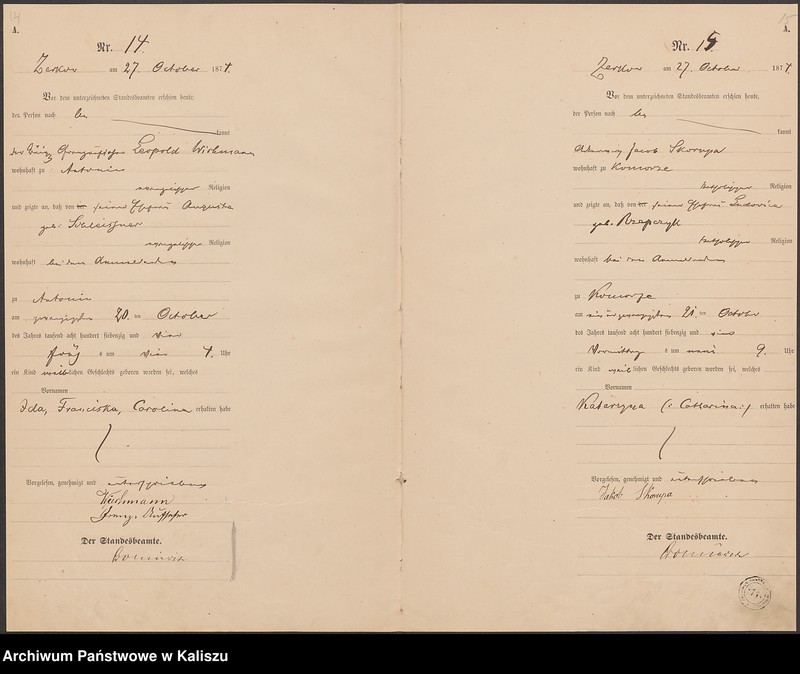 14
A.
Nr. 14.
Zerkow am 27. October 1874.
Vor dem unterzeichneten Standesbeamten erschien heute,
der Person nach
kannt
der Leopold Wichmann
wohnhaft zu Antonin
evangelischer Religion
und zeigte an, daß von der seiner Ehefrau Augusta
geb. Schleissner
evangelischer Religion
wohnhaft bei dem Anmeldenden
zu Antonin
am zwanzigsten 20. ten October
des Jahres tausend acht hundert siebenzig und vier
früh s um vier 4. Uhr
ein Kind weiblichen Geschlechts geboren worden sei, welches
Vornamen
Ida, Franciska, Carolina erhalten habe
Vorgelesen, genehmigt und unterschrieben
Wichmann
Der Standesbeamte.
15
A.
Nr. 15
Zerkow am 27. October 1874.
Vor dem unterzeichneten Standesbeamten erschien heute,
der Person nach
kannt
Jacob Skorupa
wohnhaft zu Komorze
katholischer Religion
und zeigte an, daß von der seiner Ehefrau Ludovica
geb. Rzepczyk
katholischer Religion
wohnhaft bei dem Anmeldenden
zu Komorze
am einundzwanzigsten 21. ten October
des Jahres tausend acht hundert siebenzig und vier
Vormittag s um neun 9. Uhr
ein Kind weiblichen Geschlechts geboren worden sei, welches
Vornamen
Katarzyna (: Catharina :) erhalten habe
Vorgelesen, genehmigt und unterschrieben
Jakob Skorupa
Der Standesbeamte.
Archiwum Państwowe w Kaliszu